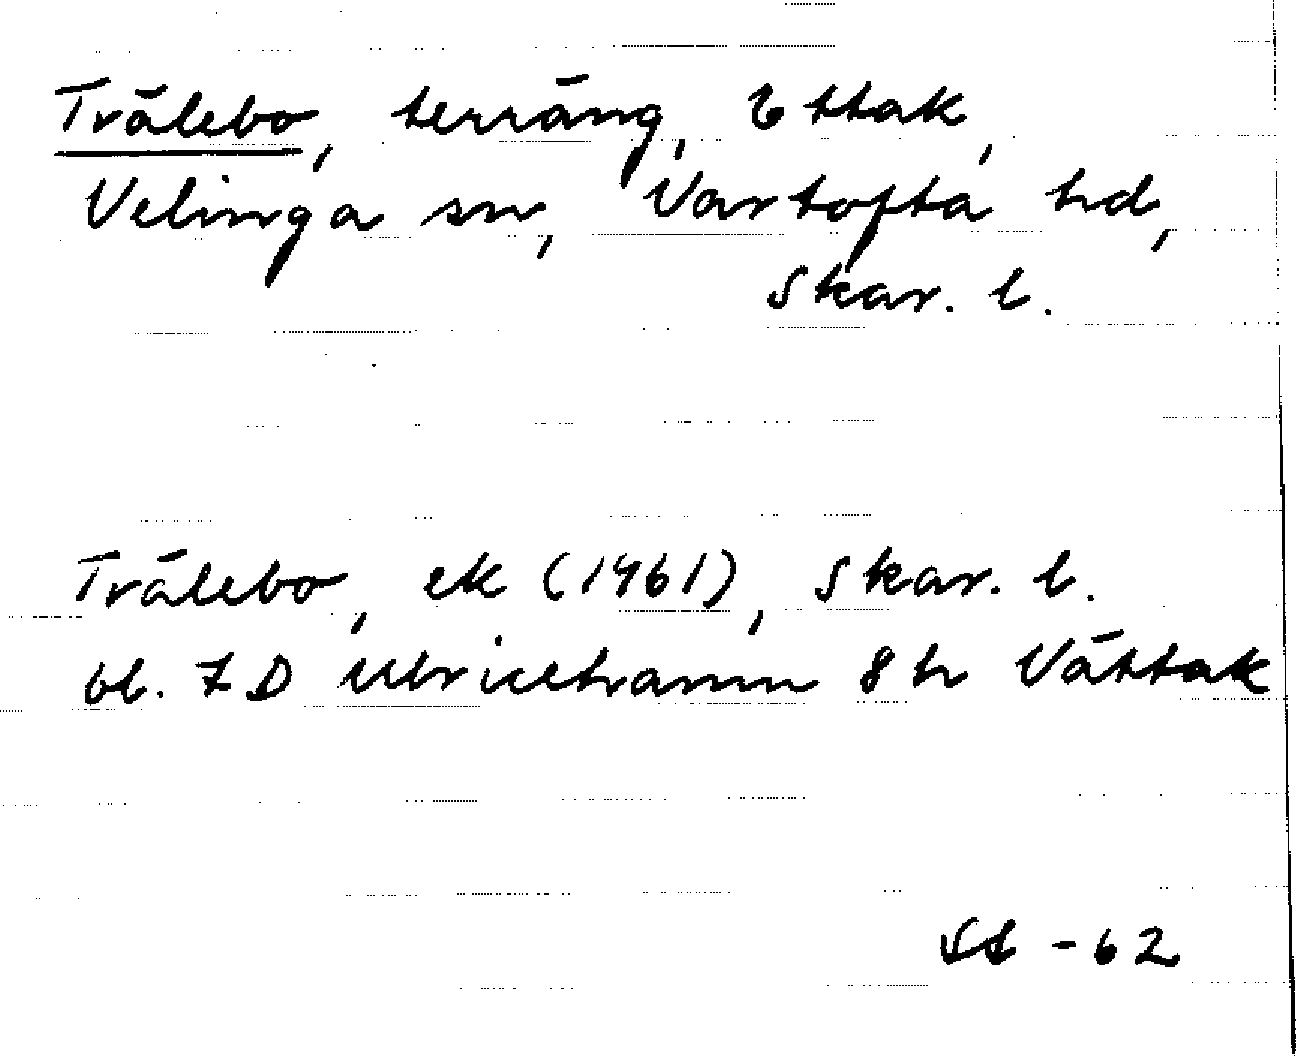 Trälebo, terräng, Ettak,
Velinga sn, Vartofta hd,
Skar. l.
Trälebo, ek (1961), Skar. l.
bl. 7D Ulricehamn 8h Vättak
-62